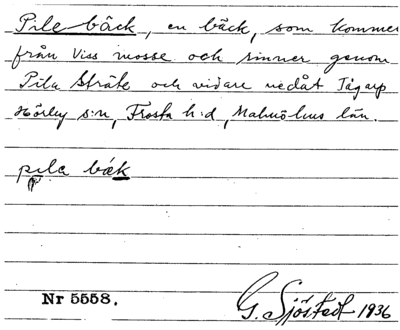 Pile bäck, en bäck, som kommer
från Viss mosse och rinner genom
Pila Sträte och vidare nedåt Tågarp
Hörby s:n, Frosta h:d, Malmöhus län.
pila bäk
Nr 5558.
G. Sjöstedt 1936